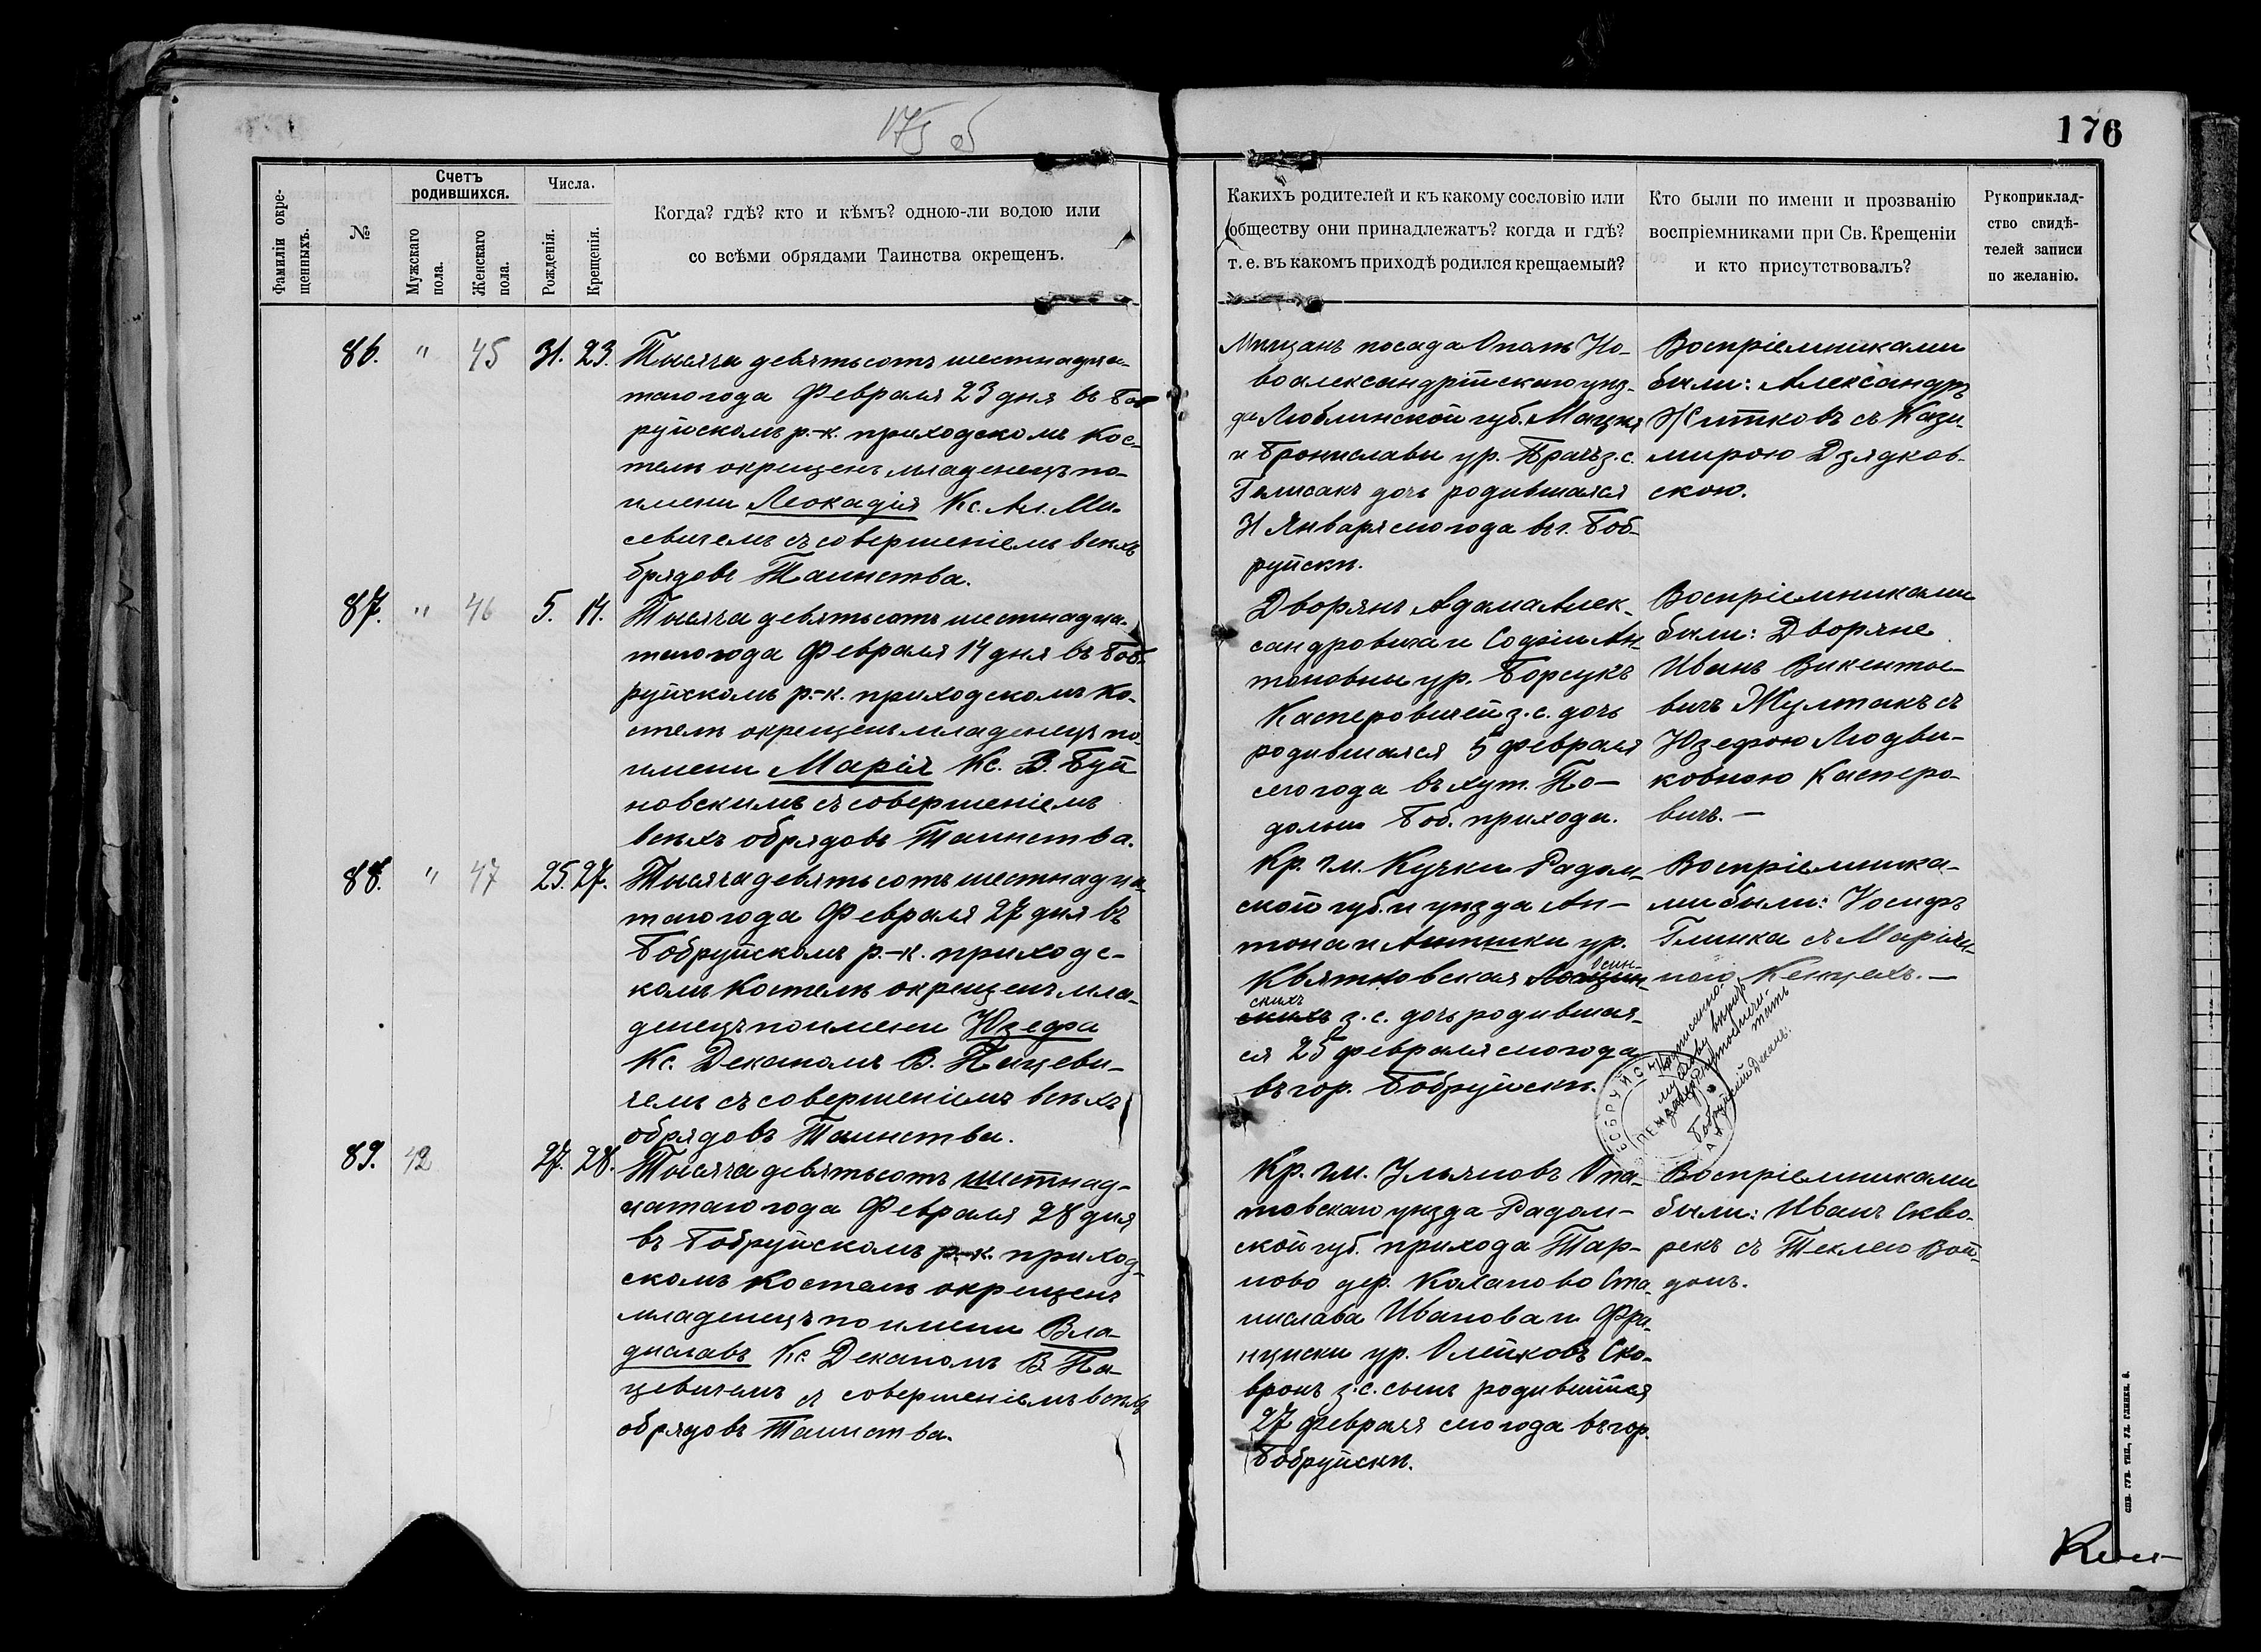 175 об
176
Фамиліи окре-
щенныхъ.
№
Счетъ
родившихся.
Мужскаго
пола.
Женскаго
пола.
Числа.
Рожденія.
Крещенія.
Когда? гдѣ? кто и кѣмъ? одною-ли водою или
со всѣми обрядами Таинства окрещенъ.
Какихъ родителей и къ какому сословію или
обществу они принадлежатъ? когда и гдѣ?
т. е. въ какомъ приходѣ родился крещаемый?
Кто были по имени и прозванію
воспріемниками при Св. Крещеніи
и кто присутствовалъ?
Рукоприклад-
ство свидѣ-
телей записи
по желанію.
86. " 45 31. 23.
Тысяча девятьсотъ шестнадца-
таго года Февраля 23 дня въ Боб
руйскомъ р.-к. приходскомъ Кос-
телѣ окрещенъ младенецъ по
имени Леокадія Кс. Ал. Ми-
севичемъ съ совершеніемъ всѣхъ
брядовъ Таинства.
Мѣщанъ посада Ополь Но-
воалександрійскаго уѣз-
да Люблинской губ. Мацѣя
и Брониславы ур. з. с.
дочь родившаяся
31 Января сего года въ г. Боб-
руйскѣ.
Воспріемниками
были: Александръ
Житковъ съ Кази-
мирою Дзядков-
скою.
87. " 46 5. 14.
Тысяча девятьсотъ шестнадца-
таго года Февраля 14 дня въ Боб-
руйскомъ р.-к. приходскомъ Ко-
стелѣ окрещенъ младенецъ по
имени Марія Кс. В. Буй
новскимъ съ совершеніемъ
всѣхъ обрядовъ Таинства.
Дворянъ Адама Алек-
сандровича и Софіи Ан-
тоновны ур. Борсукъ
Касперовичей з. с. дочь
родившаяся 5 февраля
сего года въ хут. По-
дольи Боб. прихода.
Воспріемниками
были: Дворяне
Иванъ Викентье-
вичъ Жултакъ съ
Юзефою Людви-
ковною Касперо-
вичъ. —
88. " 47 25. 27.
Тысяча девятьсотъ шестнадца-
таго года Февраля 27 дня въ
Бобруйскомъ р.-к. приходс-
комъ Костелѣ окрещенъ мла-
денецъ по имени Юзефа
Кс. Деканомъ В. Пацеви-
чемъ съ совершеніемъ всѣхъ
обрядовъ Таинства.
Кр. гм. Кучки Радом-
ской губ. и уѣзда Ан-
тона и ур.
Квятковская Осин-
скихъ з. с. дочь родившая-
ся 25 февраля сего года
въ гор. Бобруйскѣ.
Воспріемника-
ми были: Іосифъ
Глинка съ Маріян-
ною
Бобруйскій Деканъ.
89. 42 27. 28.
Тысяча девятьсотъ шестнад-
цатаго года Февраля 28 дня
въ Бобруйскомъ р.-к. приход-
скомъ Костелѣ окрещенъ
младенецъ по имени Вла-
диславъ Кс. Деканомъ В. Па-
цевичемъ съ совершеніемъ всѣхъ
обрядовъ Таинства.
Кр. гм. Ульяновъ Опа-
товскаго уѣзда Радом-
ской губ. прихода Тар-
лово дер. Коханово Ста-
нислава Иванова и Фра-
нциски ур. Олейковъ Ско-
вронъ з. с. сынъ родившійся
27 февраля сего года въ гор.
Бобруйскѣ.
Воспріемниками
были: Иванъ Скво-
рекъ съ Теклею Вой-
донъ.
СПБ. ГУБ. ТИП., УЛ. ГЛИНКИ, 8.